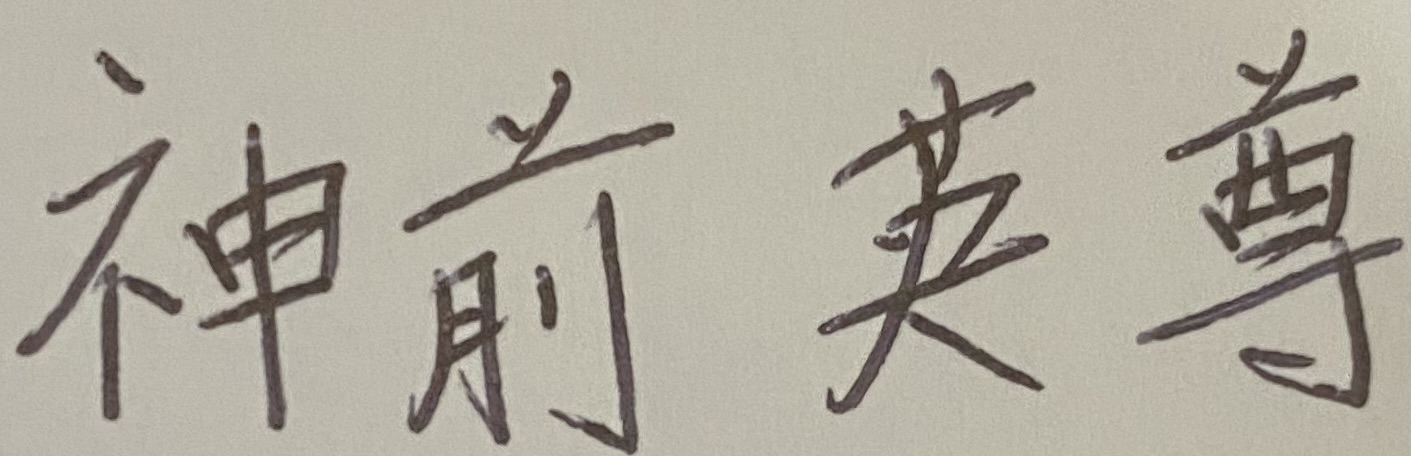 神前 英尊